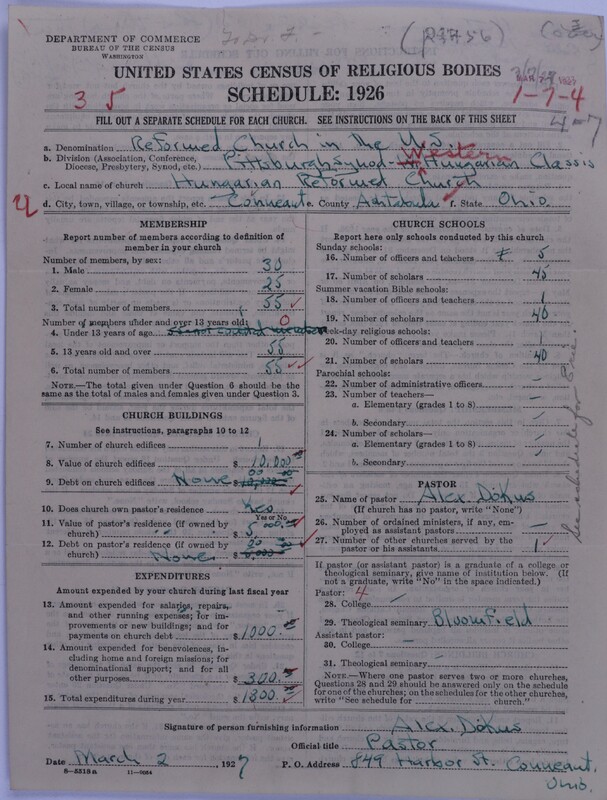 DEPARTMENT OF COMMERCE
BUREAU OF THE CENSUS
WASHINGTON
UNITED STATES CENSUS OF RELIGIOUS BODIES
SCHEDULE: 1926
3 5
1-7-4
4-7
FILL OUT A SEPARATE SCHEDULE FOR EACH CHURCH. SEE INSTRUCTIONS ON THE BACK OF THIS SHEET
a. Denomination Reformed Church in the U.S.
b. Division (Association, Conference, Diocese, Presbytery, Synod, etc.) Pittsburgh Synod - Western Hungarian Classis
c. Local name of church Hungarian Reformed Church
d. City, town, village, or township, etc. Conneaut e. County Ashtabula f. State Ohio
MEMBERSHIP
Report number of members according to definition of
member in your church
Number of members, by sex:
1. Male 30
2. Female 25
3. Total number of members 55
Number of members under and over 13 years old: 0
4. Under 13 years of age
5. 13 years old and over 55
6. Total number of members 55
NOTE.—The total given under Question 6 should be
same as the total of males and females given under Question 3.
CHURCH BUILDINGS
See instructions, paragraphs 10 to 12
7. Number of church edifices 1
8. Value of church edifices $ 10,000.00
9. Debt on church edifices None $
10. Does church own pastor's residence Yes
Yes or No
11. Value of pastor's residence (if owned by
church) $ 5,000.00
12. Debt on pastor's residence (if owned by
church) None $
EXPENDITURES
Amount expended by your church during last fiscal year
13. Amount expended for salaries, repairs,
and other running expenses; for im-
provements or new buildings; and for
payments on church debt $ 1000.
14. Amount expended for benevolences, in-
cluding home and foreign missions; for
denominational support; and for all
other purposes $ 300.
15. Total expenditures during year $ 1300.
CHURCH SCHOOLS
Report here only schools conducted by this church
Sunday schools:
16. Number of officers and teachers 5
17. Number of scholars 45
Summer vacation Bible schools:
18. Number of officers and teachers 1
19. Number of scholars 40
Week-day religious schools:
20. Number of officers and teachers 1
21. Number of scholars 40
Parochial schools:
22. Number of administrative officers —
23. Number of teachers—
a. Elementary (grades 1 to 8) —
b. Secondary —
24. Number of scholars—
a. Elementary (grades 1 to 8) —
b. Secondary
PASTOR
25. Name of pastor Alex. Dókus
(If church has no pastor, write "None")
26. Number of ordained ministers, if any, em-
ployed as assistant pastors —
27. Number of other churches served by the
pastor or his assistants 1
If pastor (or assistant pastor) is a graduate of a college or
theological seminary, give name of institution below. (If
not a graduate, write "No" in the space indicated.)
Pastor: 4
28. College —
29. Theological seminary Bloomfield
Assistant pastor:
30. College —
31. Theological seminary —
NOTE.—Where one pastor serves two or more churches,
Questions 28 and 29 should be answered only on the schedule
for one of the churches; on the schedules for the other churches,
write "See schedule for church."
Signature of person furnishing information Alex. Dókus
Official title Pastor
Date March 2, 1927 P. O. Address 849 Harbor St. Conneaut.
Ohio.
8-5313a 11-9064